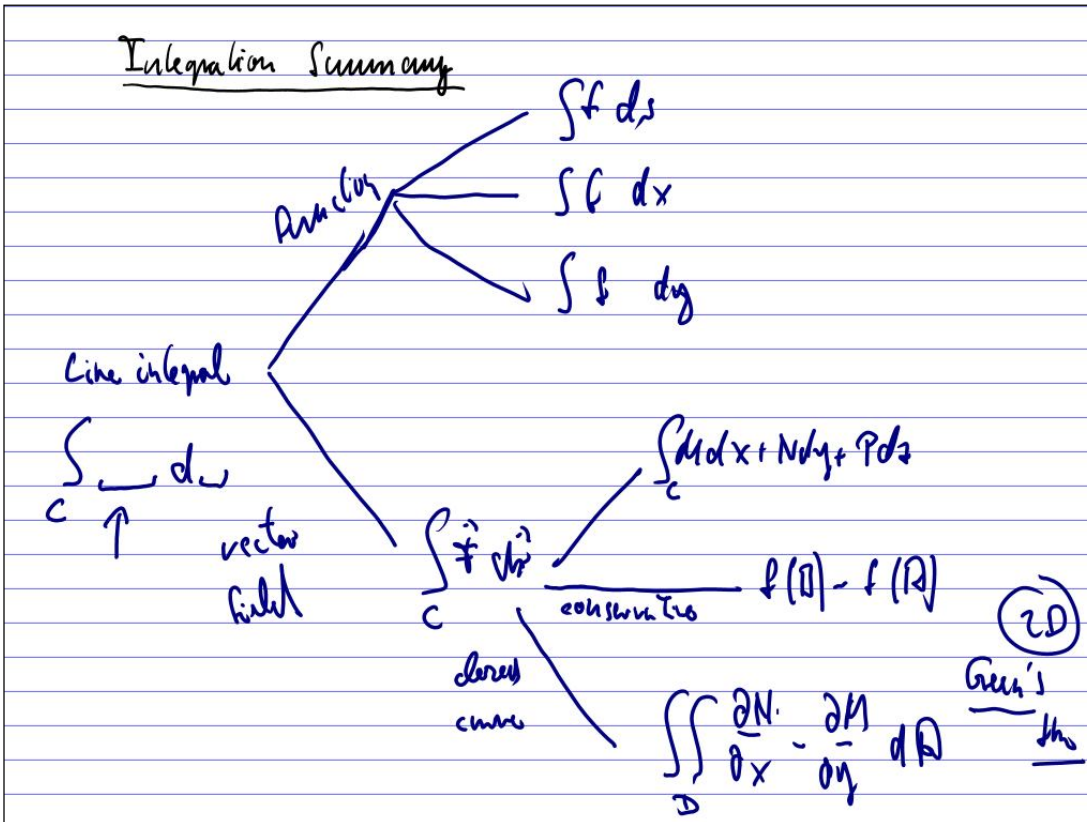 Integration Summary
∫ f ds
function
∫ f dx
∫ f dy
Line integral
∫_C __ d_
↑
vector
field
∫_C F⃗ dr⃗
∫_C Mdx + Ndy + Pdz
conservative
f(B) - f(A)
2D
closed
curve
∬_D ∂N/∂x - ∂M/∂y dA
Green's
thm